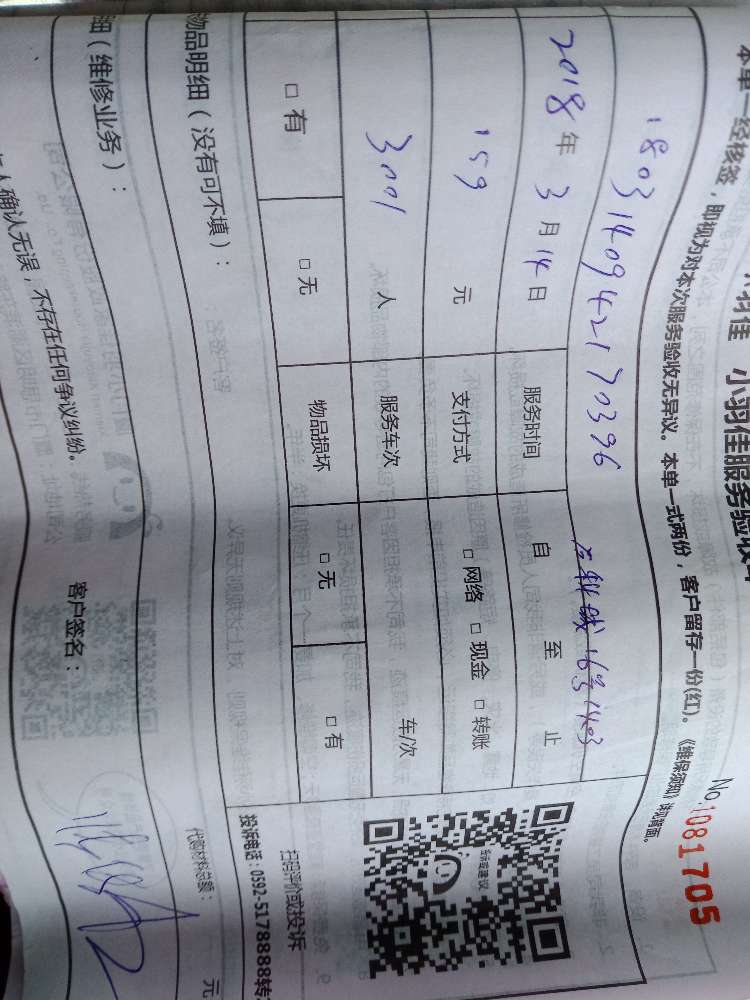 羽佳 小羽佳服务验收
No.1081705
本单一经核签，即视为对本次服务验收无异议。本单一式两份，客户留存一份(红)。《维保须知》详见背面。
18031409421 70396
16号1403
2018年3月14日 服务时间 自 至 止
159 元 支付方式 □ 网络 □ 现金 □ 转账
3001 人 服务车次 车/次
□ 有 □ 无 物品损坏 □ 无 □ 有
扫码评价或投诉
投诉电话：0592-5178888转
物品明细（没有可不填）：
代购材料总额： 元
细（维修业务）：
人确认无误，不存在任何争议纠纷。 客户签名：